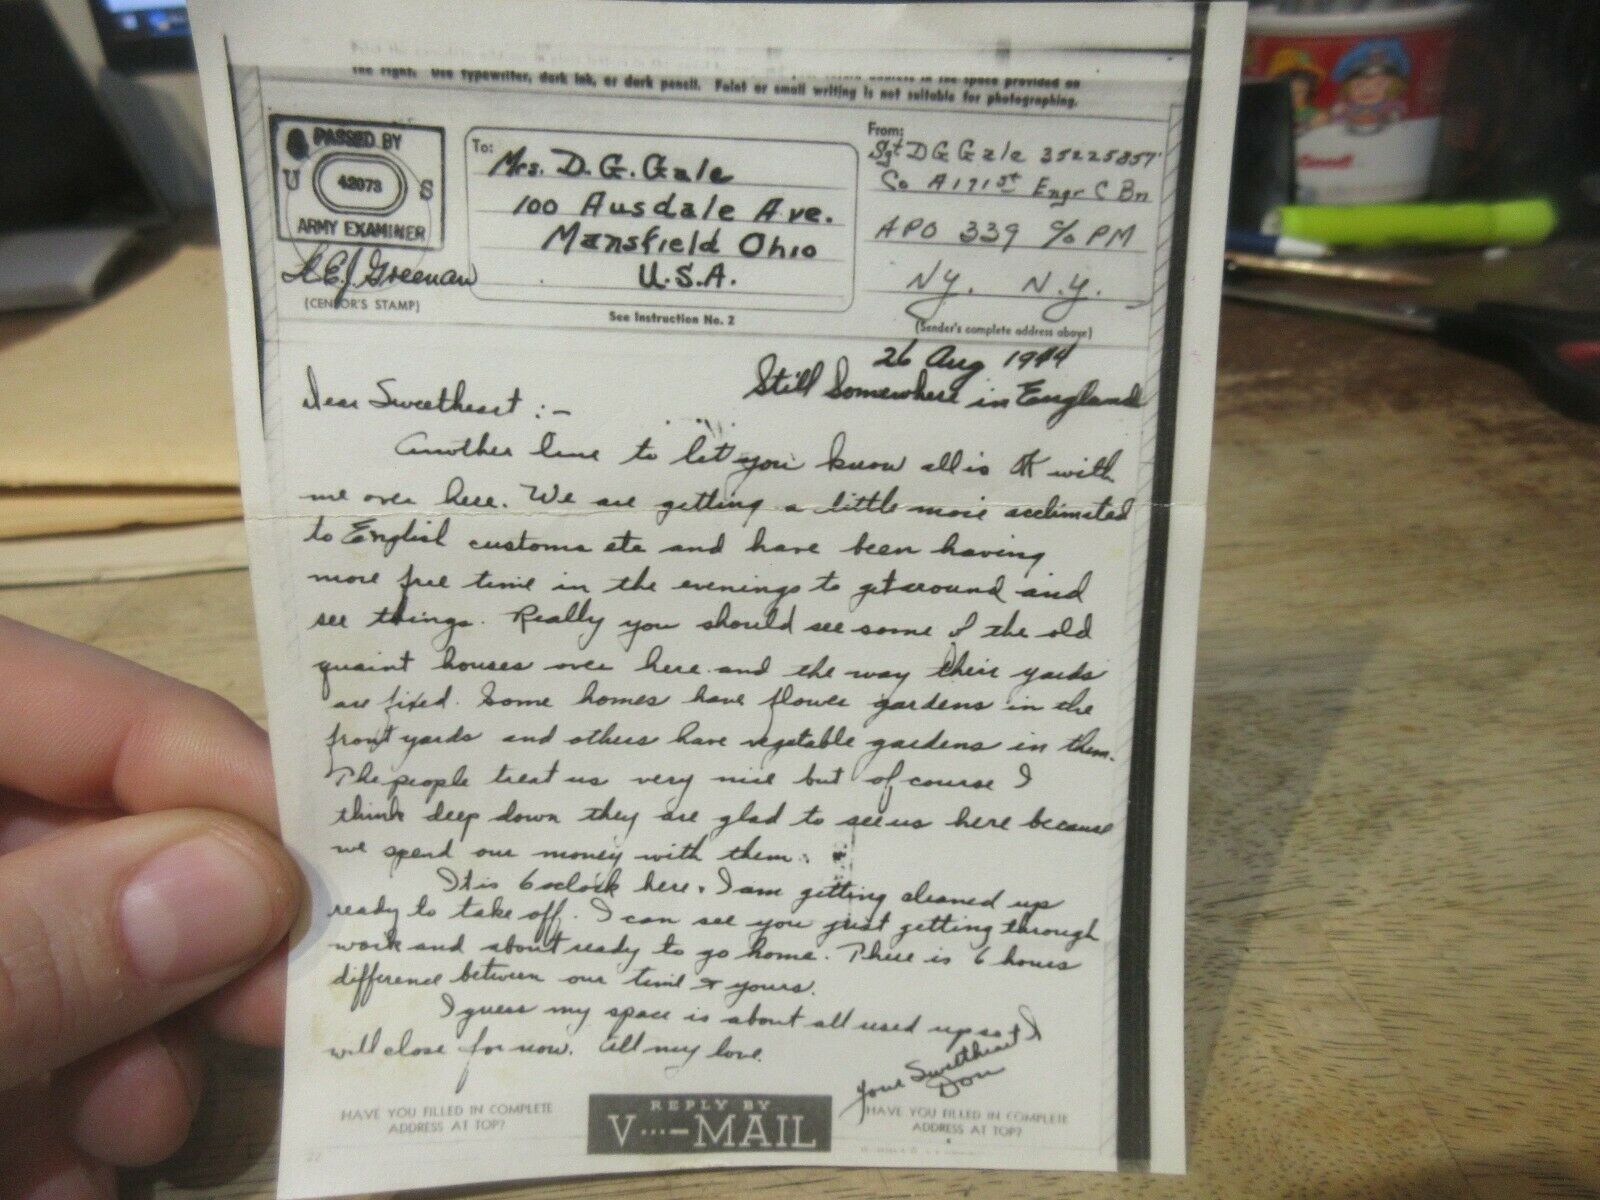 the right. Use typewriter, dark ink, or dark pencil. Faint or small writing is not suitable for photographing.
PASSED BY
U 42073 S
ARMY EXAMINER
(CENSOR'S STAMP)
To:
Mrs. D. G. Gale
100 Ausdale Ave.
Mansfield Ohio
U.S.A.
See Instruction No. 2
From:
Sgt D G Gale 35225857
Co A 171st Engr C Bn
APO 339 % PM
NY. N.Y.
(Sender's complete address above)
26 Aug 1944
Still Somewhere in England
Dear Sweetheart :-
Another line to let you know all is OK with
me over here. We are getting a little more acclimated
to English customs etc and have been having
more free time in the evenings to get around and
see things. Really you should see some of the old
quaint houses over here and the way their yards
are fixed. Some homes have flower gardens in the
front yards and others have vegetable gardens in them.
The people treat us very nice but of course I
think deep down they are glad to see us here because
we spend our money with them.
It is 6 oclock here. I am getting cleaned up
ready to take off. I can see you just getting through
work and about ready to go home. There is 6 hours
difference between our time & yours.
I guess my space is about all used up so I
will close for now. All my love.
Your Sweetheart
Don
HAVE YOU FILLED IN COMPLETE
ADDRESS AT TOP?
REPLY BY
V···—MAIL
HAVE YOU FILLED IN COMPLETE
ADDRESS AT TOP?